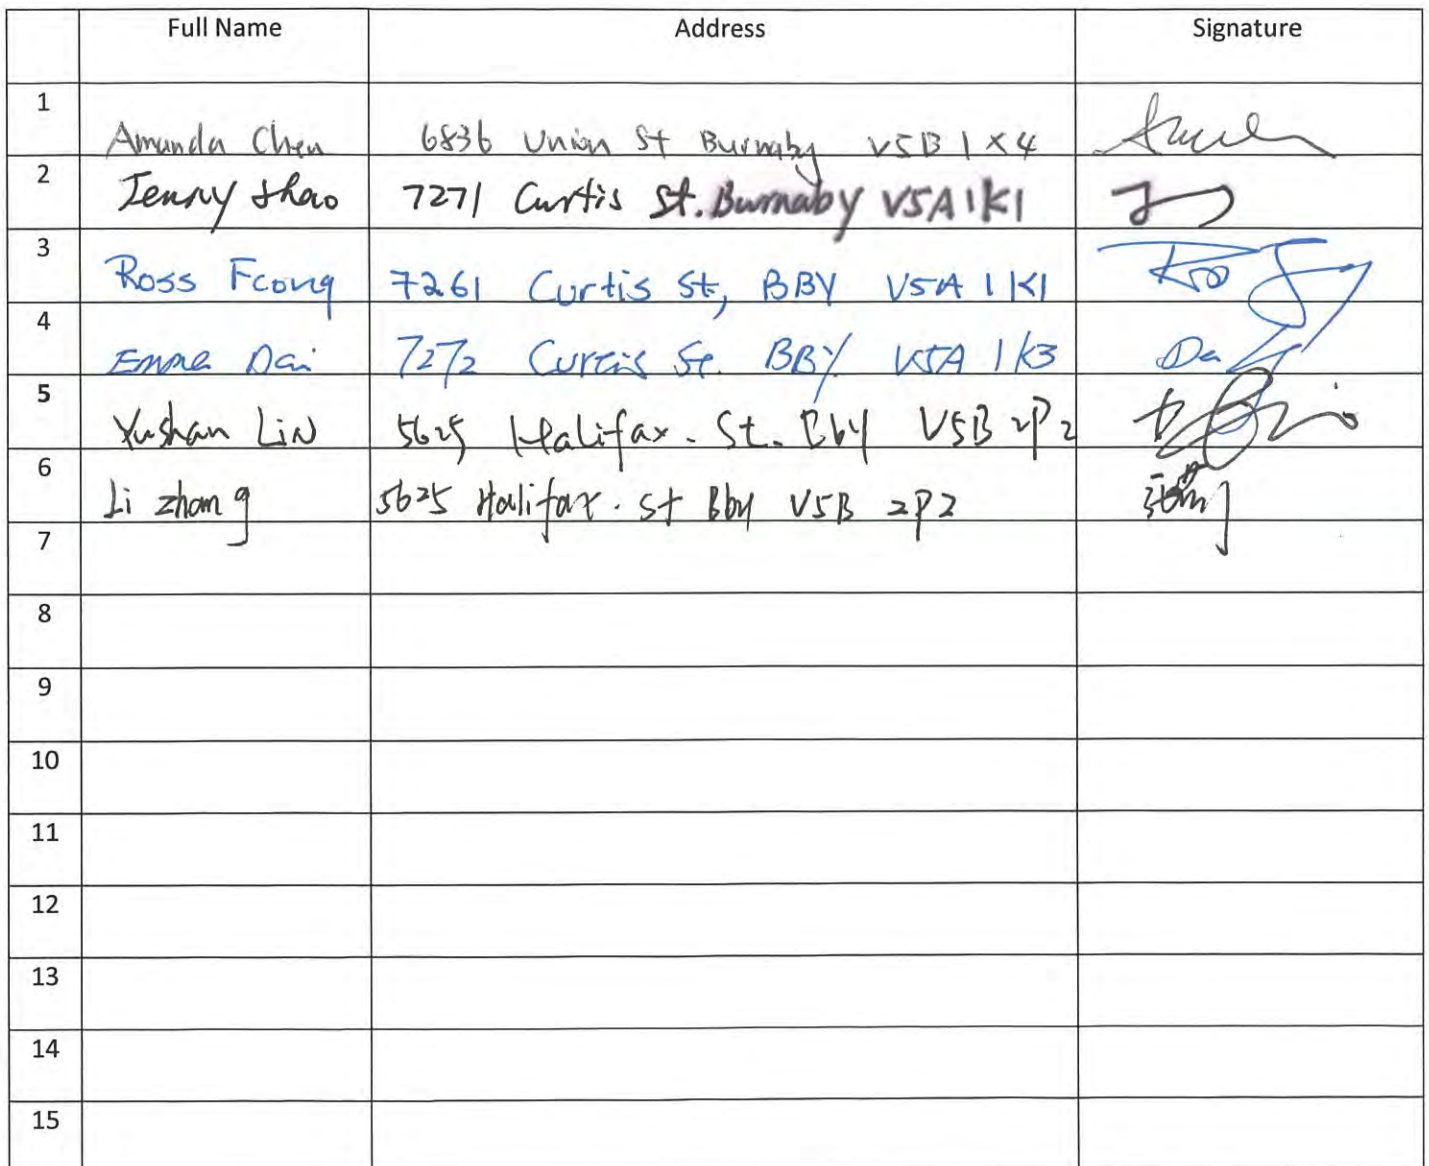 Full Name Address Signature
1 Amanda Chen 6836 Union St Burnaby V5B 1X4
2 Jenny Shao 7271 Curtis St. Burnaby V5A 1K1
3 Ross Fcong 7261 Curtis St, BBY V5A 1K1
4 Emma Dai 7272 Curtis St. BBY V5A 1K3
5 Yushan Lin 5625 Halifax. St. Bby V5B 2P2
6 Li zhang 5625 Halifax. St Bby V5B 2P2
7
8
9
10
11
12
13
14
15